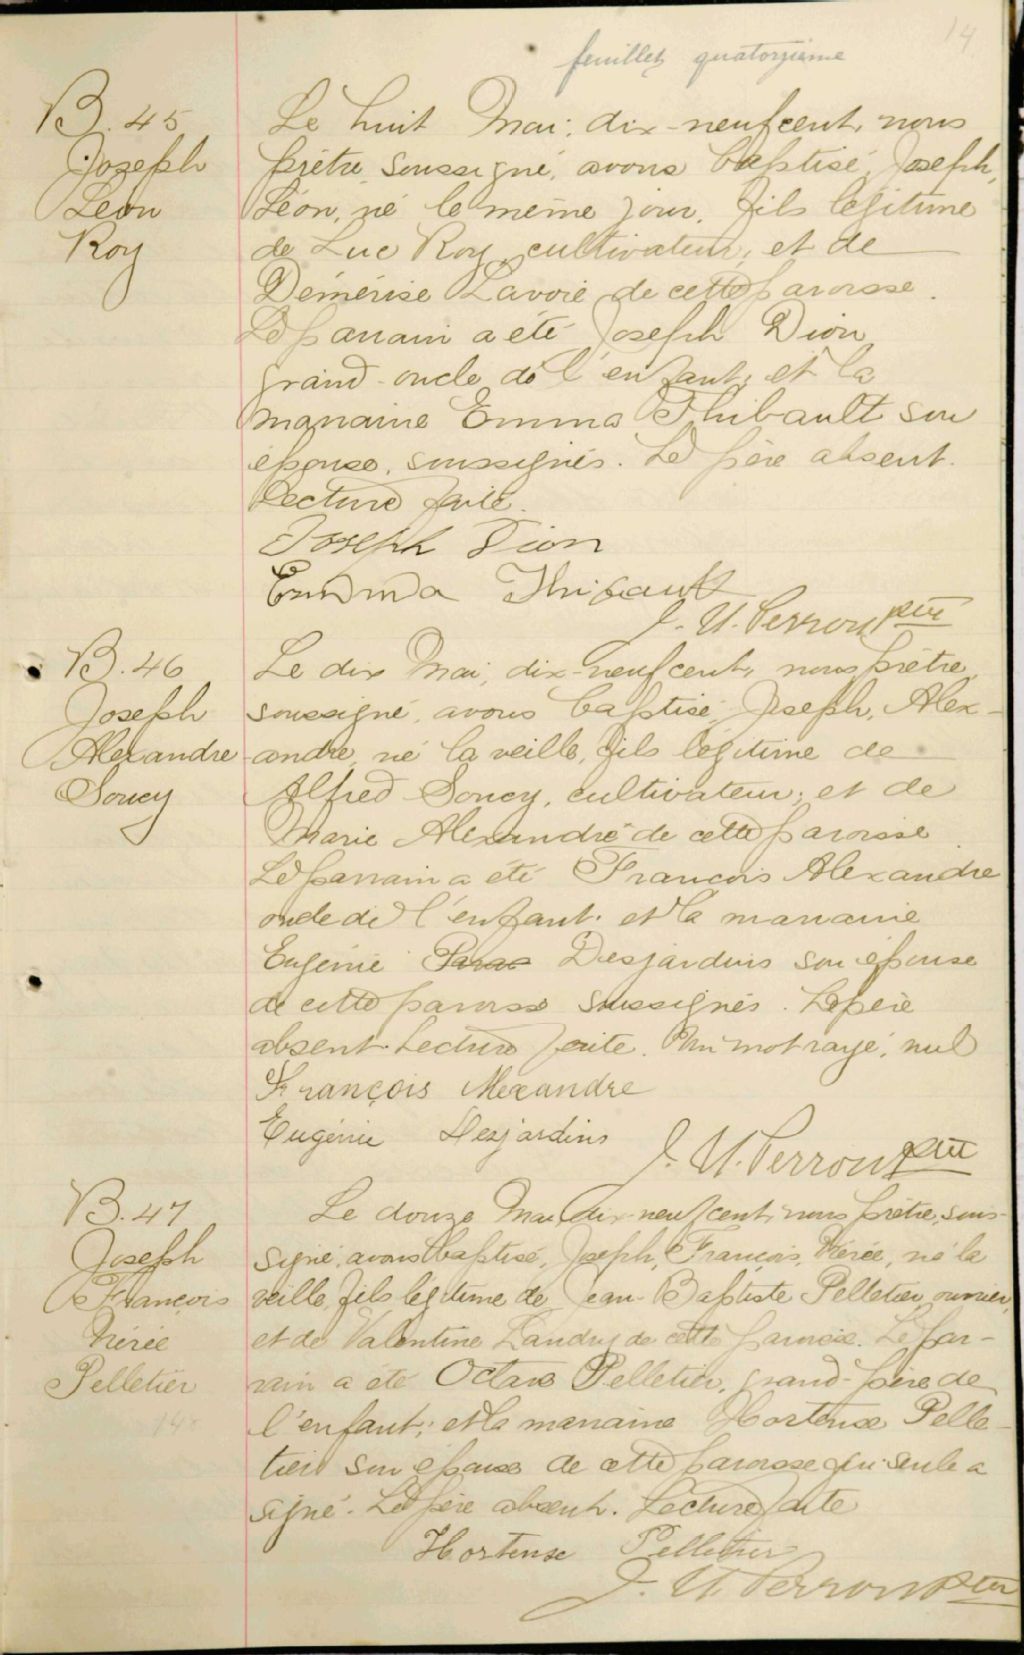 14
feuillet quatorzième
B. 45
Joseph
Léon
Roy
Le huit Mai, dix-neuf cent, nous
prêtre soussigné, avons baptisé, Joseph,
Léon, né le même jour, fils légitime
de Luc Roy, cultivateur, et de
Démérise Lavoie de cette paroisse.
Le parrain a été Joseph Dion
grand-oncle de l'enfant, et la
marraine Emma Thibault son
épouse, soussignés. Le père absent.
Lecture faite.
Joseph Dion
Emma Thibault
J. U. Perron ptre
B. 46
Joseph
Alexandre
Soucy
Le dix Mai, dix-neuf cent, nous prêtre
soussigné, avons baptisé, Joseph, Alex-
andre, né la veille, fils légitime de
Alfred Soucy, cultivateur, et de
Marie Alexandre de cette paroisse
Le parrain a été François Alexandre
oncle de l'enfant, et la marraine
Eugénie Desjardins son épouse
de cette paroisse soussignés. Le père
absent. Lecture faite. Un mot rayé, nul
François Alexandre
Eugénie Desjardins
J. U. Perron ptre
B. 47
Joseph
François
Nérée
Pelletier
Le douze Mai, dix-neuf cent, nous prêtre, sous-
signé, avons baptisé, Joseph, François, Nérée, né la
veille, fils légitime de Jean-Baptiste Pelletier, ouvrier,
et de Valentine Landry de cette paroisse. Le par-
rain a été Octave Pelletier, grand-père de
l'enfant, et la marraine Hortense Pelle-
tier son épouse de cette paroisse qui seule a
signé. Le père absent. Lecture faite
Hortense Pelletier
J. U. Perron ptre